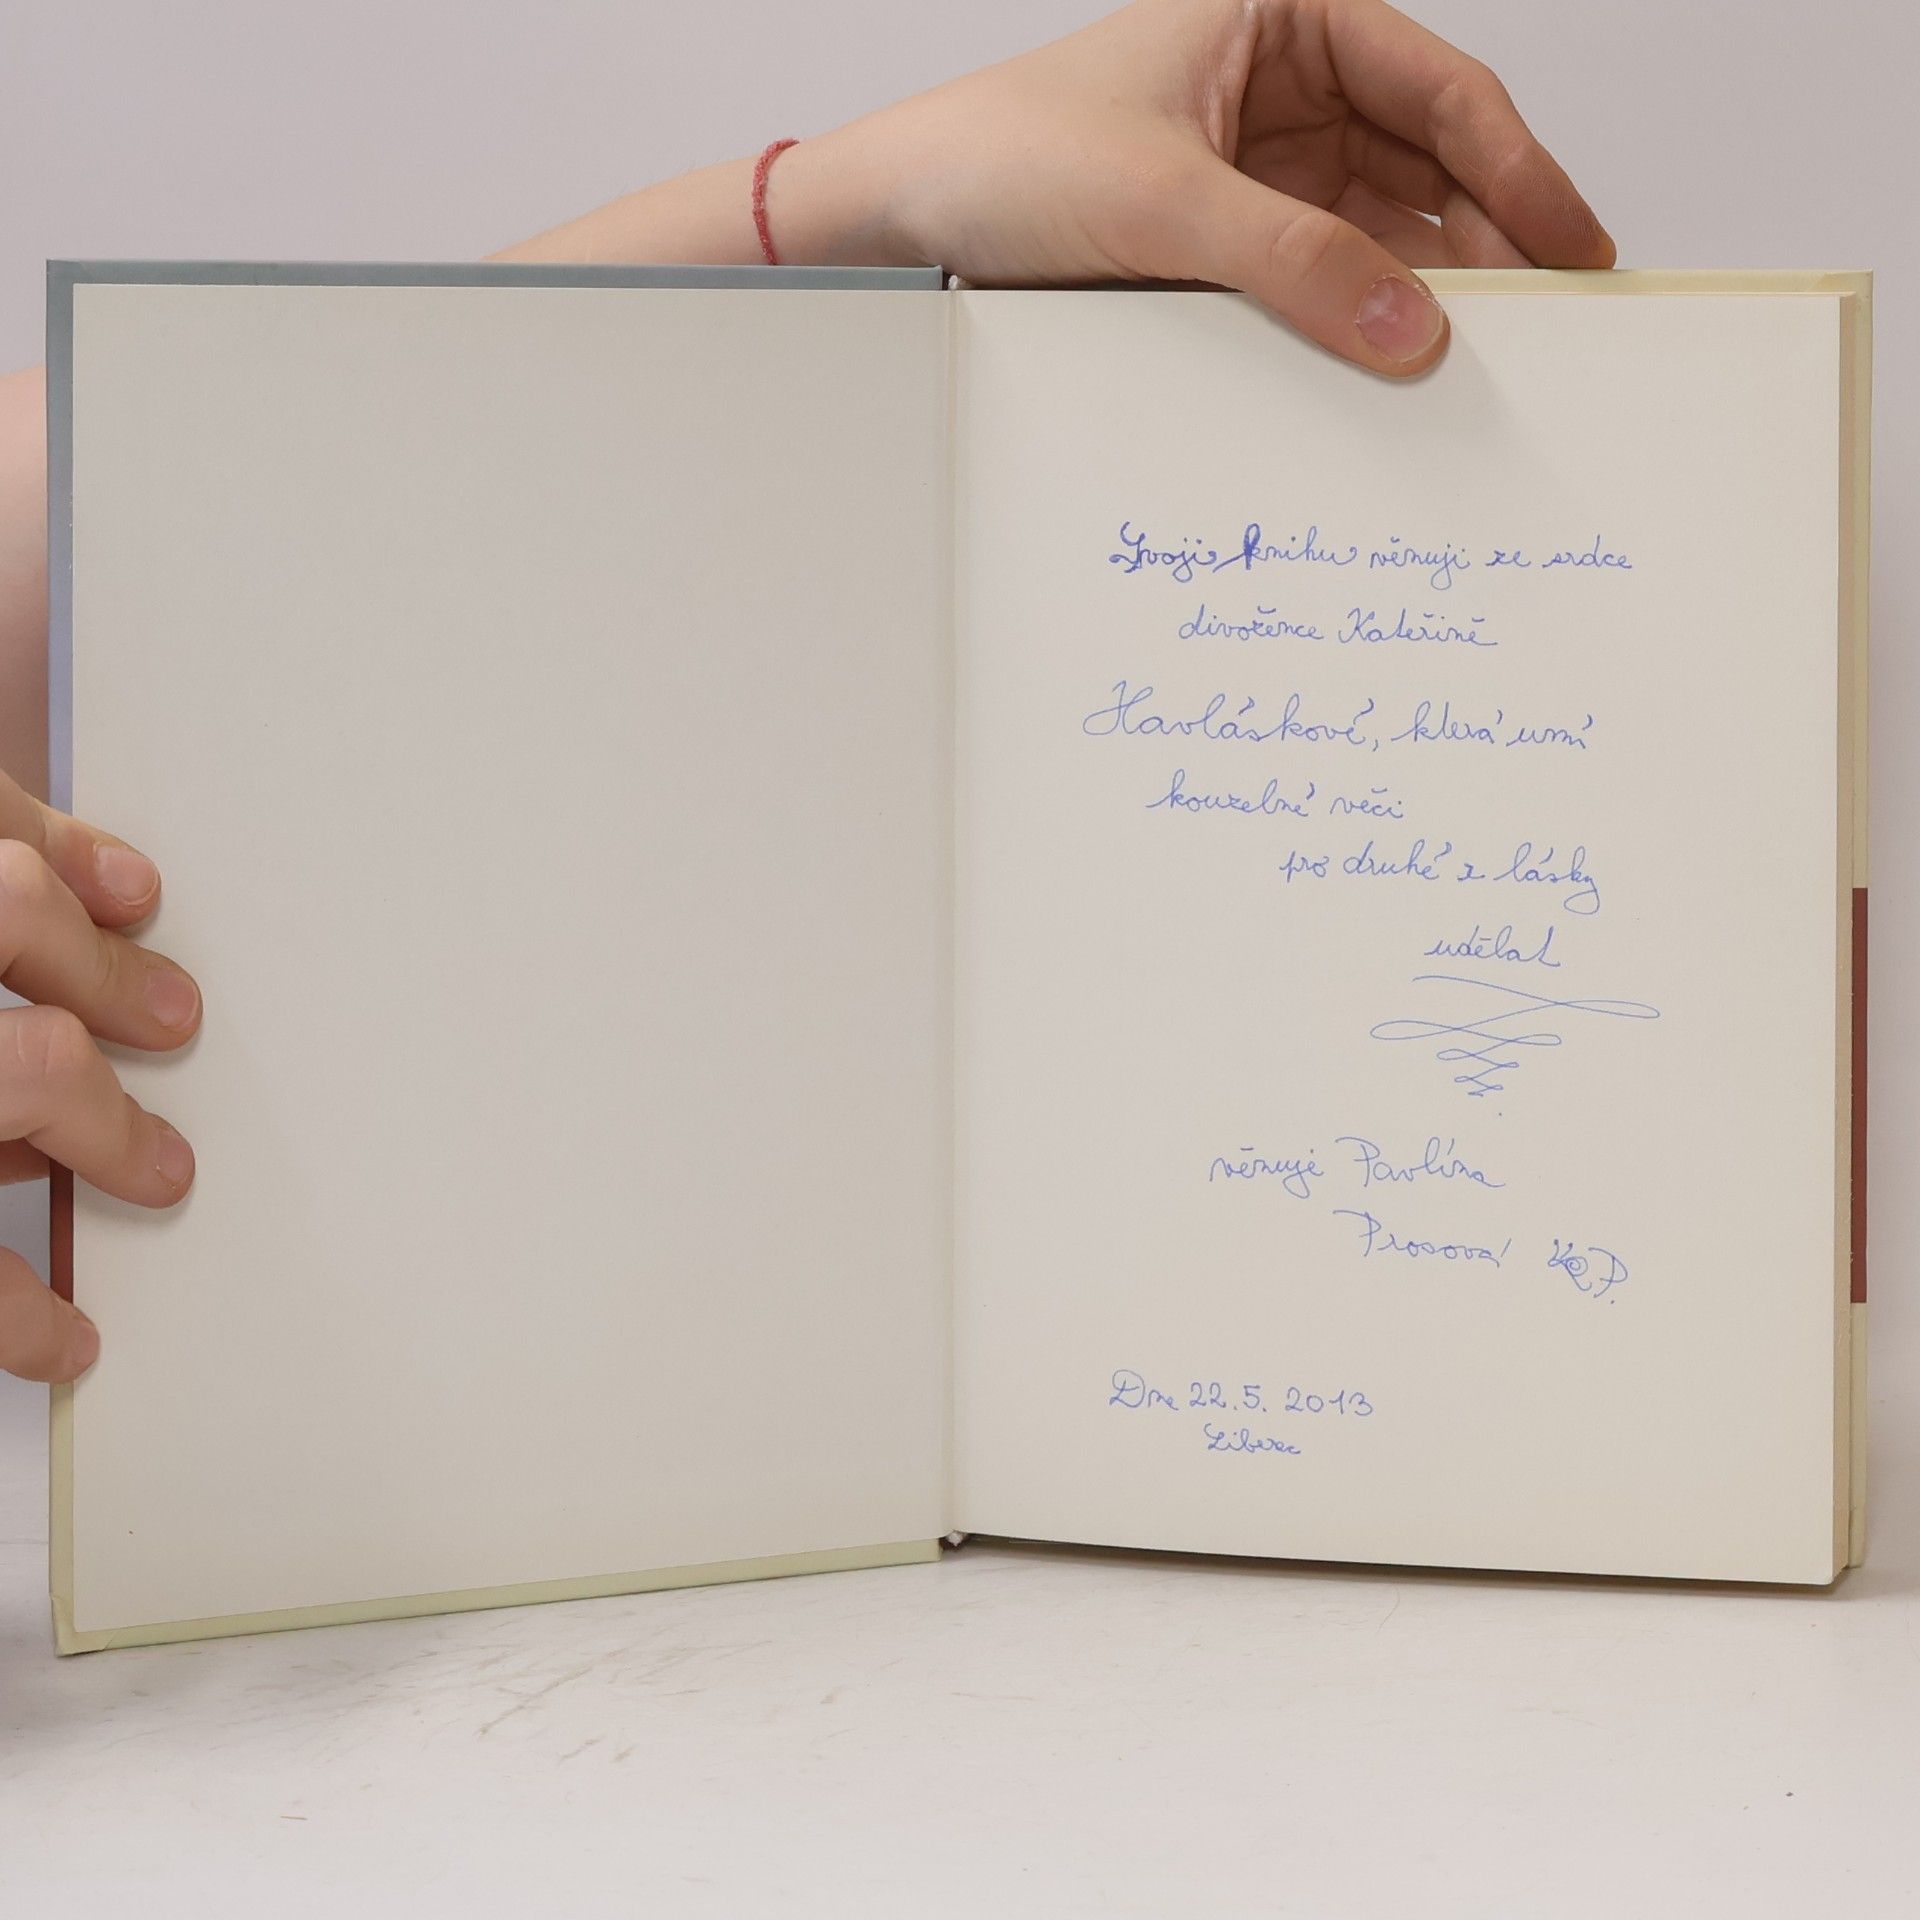 Svoji knihu věnuji ze srdce
divožence Kateřině
Havláskové, která umí
kouzelné věci
pro druhé z lásky
udělat
věnuje Pavlína
Prosová
Dne 22.5. 2013
Liberec